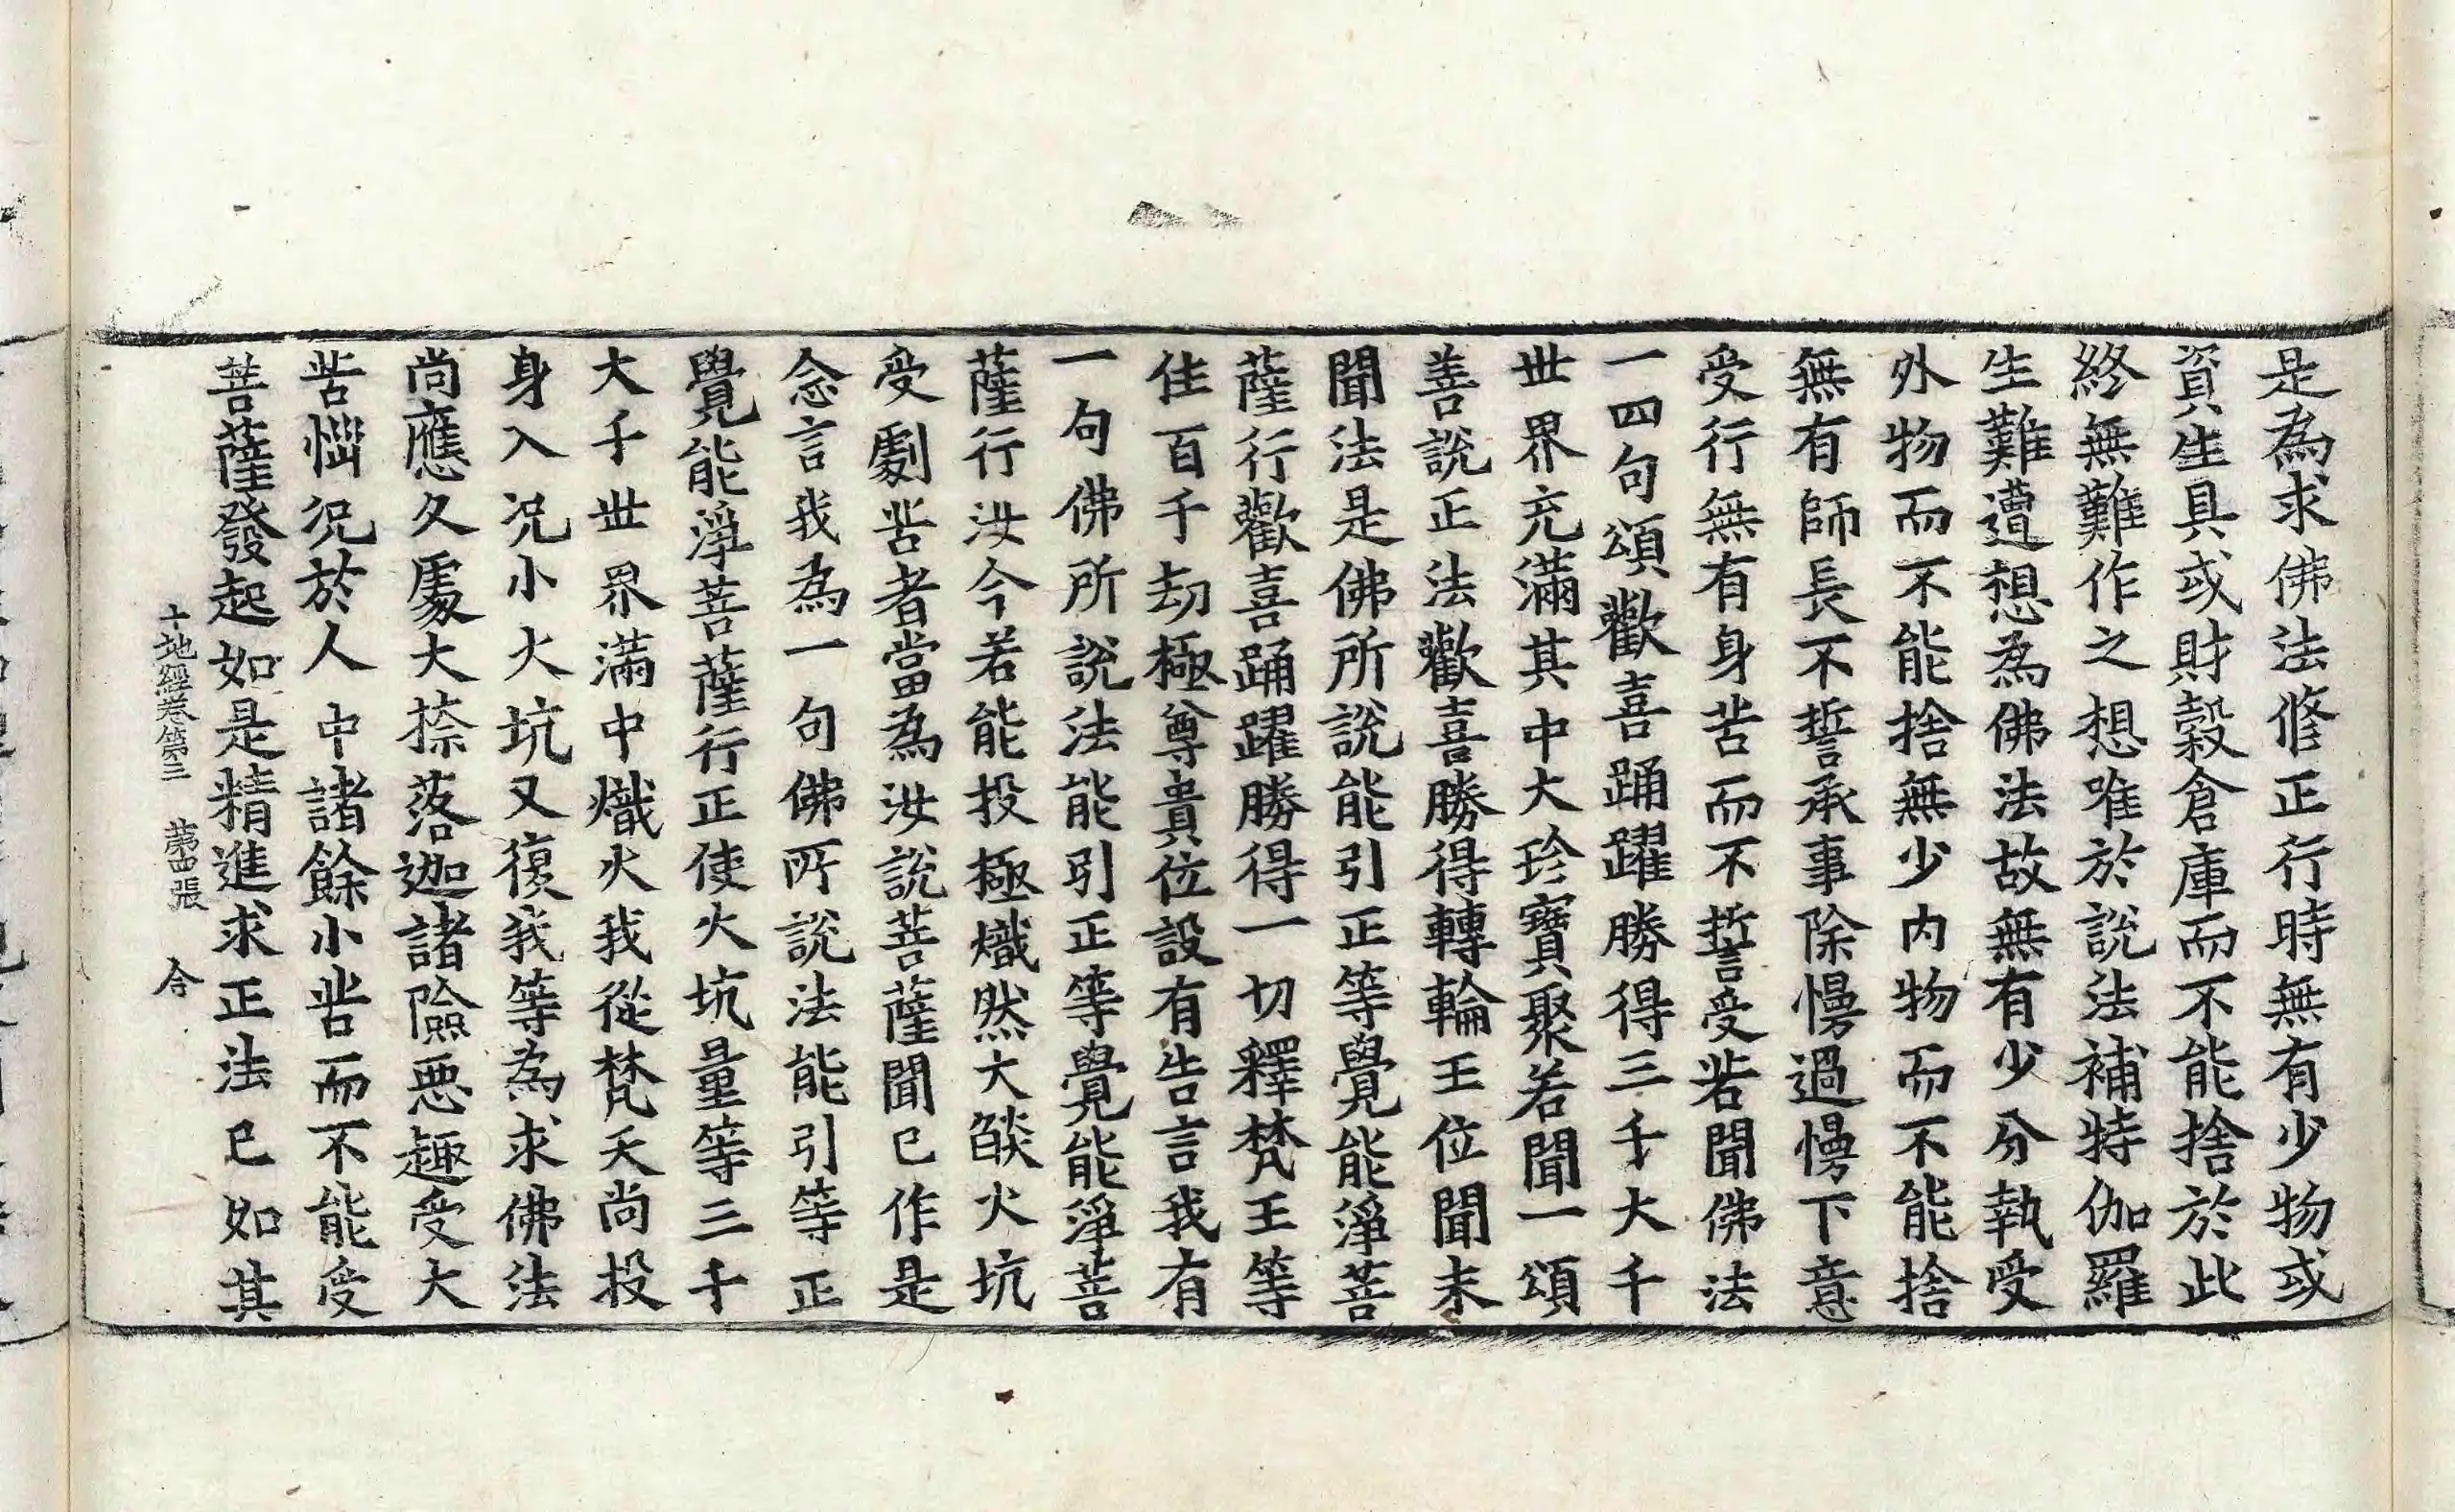 是為求佛法修正行時無有少物或
資生具或財穀倉庫而不能捨於此
終無難作之想唯於說法補特伽羅
生難遭想為佛法故無有少分執受
外物而不能捨無少内物而不能捨
無有師長不誓承事除慢過慢下意
受行無有身苦而不誓受若聞佛法
一四句頌歡喜踊躍勝得三千大千
世界充滿其中大珍寶聚若聞一頌
善說正法歡喜勝得轉輪王位聞未
聞法是佛所說能引正等覺能淨菩
薩行歡喜踊躍勝得一切釋梵王等
住百千劫極尊貴位設有告言我有
一句佛所說法能引正等覺能淨菩
薩行汝今若能投極熾然大燄火坑
受劇苦者當為汝說菩薩聞已作是
念言我為一句佛所說法能引等正
覺能淨菩薩行正使火坑量等三千
大千世界滿中熾火我從梵天尚投
身入況小火坑又復我等為求佛法
尚應久處大捺落迦諸險惡趣受大
苦惱況於人中諸餘小苦而不能受
菩薩發起如是精進求正法已如其
十地經卷第三　第四張　合